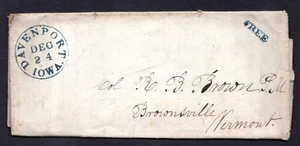 DAVENPORT
DEC
24
IOWA.
FREE
Col. R. B. Brown P.M.
Brownsville
Vermont.